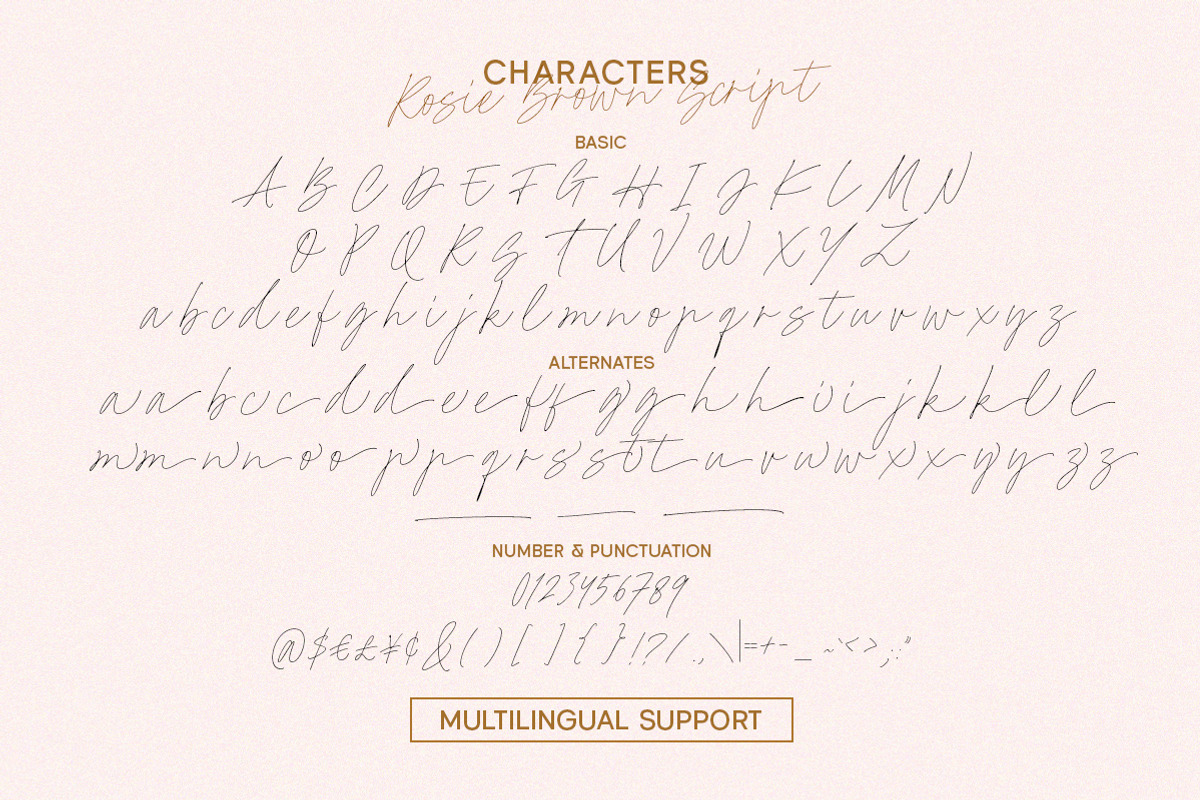 CHARACTERS
Rosie Brown Script
BASIC
A B C D E F G H I J K L M N
O P Q R S T U V W X Y Z
a b c d e f g h i j k l m n o p q r s t u v w x y z
ALTERNATES
a a b c c d d e e f f g g h h i i j k k l l
m m n n o o p p q r s s t t u v w w x x y y z z
NUMBER & PUNCTUATION
0123456789
@ $ € £ ¥ ¢ & ( ) [ ] { } ! ? / . , \ | = + - _ ~ ` < > ; : "
MULTILINGUAL SUPPORT